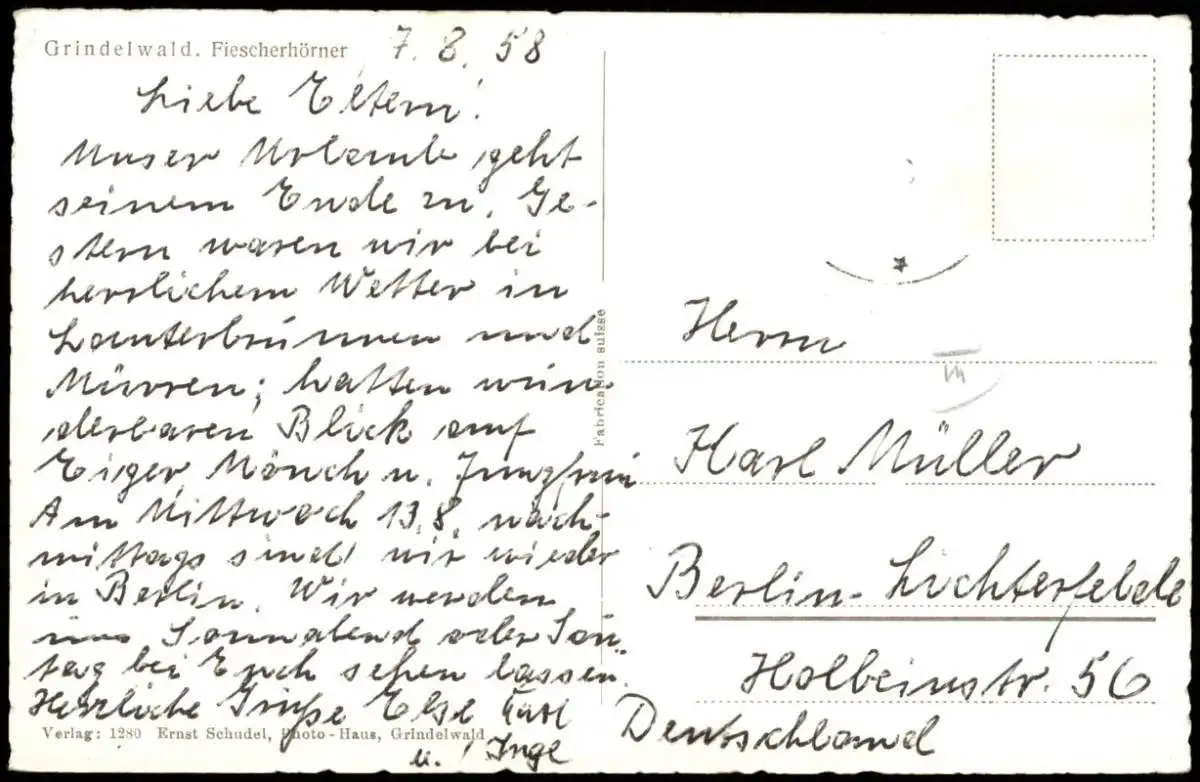 Grindelwald. Fiescherhörner
7. 8. 58
Liebe Eltern!
Unser Urlaub geht
seinem Ende zu. Ge-
stern waren wir bei
herrlichem Wetter in
Lauterbrunnen und
Mürren; hatten wun-
derbaren Blick auf
Eiger, Mönch u. Jungfrau
Am Mittwoch 13.8. nach-
mittags sind wir wieder
in Berlin. Wir werden
uns Sonnabend oder Son-
tag bei Euch sehen lassen.
Herzliche Grüße Else Karl
u. Inge
Verlag: 1280 Ernst Schudel, Photo-Haus, Grindelwald
Fabrication suisse
Herrn
Karl Müller
Berlin-Lichterfelde
Holbeinstr. 56
Deutschland